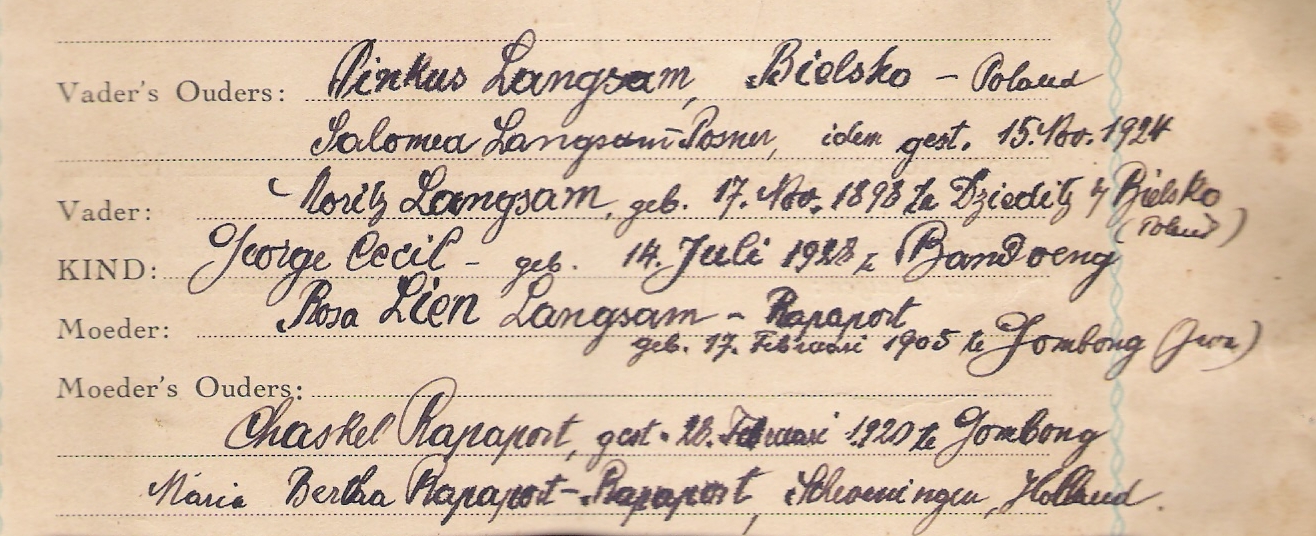 Vader's Ouders: Pinkus Langsam, Bielsko - Poland
Salomea Langsam-Posner, idem gest. 15. Nov. 1924
Vader: Moritz Langsam, geb. 17. Nov. 1898 te Dzieditz b/ Bielsko
(Poland)
KIND: George Cecil - geb. 14. Juli 1928 te Bandoeng
Moeder: Rosa Lien Langsam - Rapaport
geb. 17. Februari 1905 te Gombong (Java)
Moeder's Ouders:
Chaskel Rapaport, gest. 28. Februari 1920 te Gombong
Maria Bertha Rapaport-Rapaport, Scheveningen, Holland.